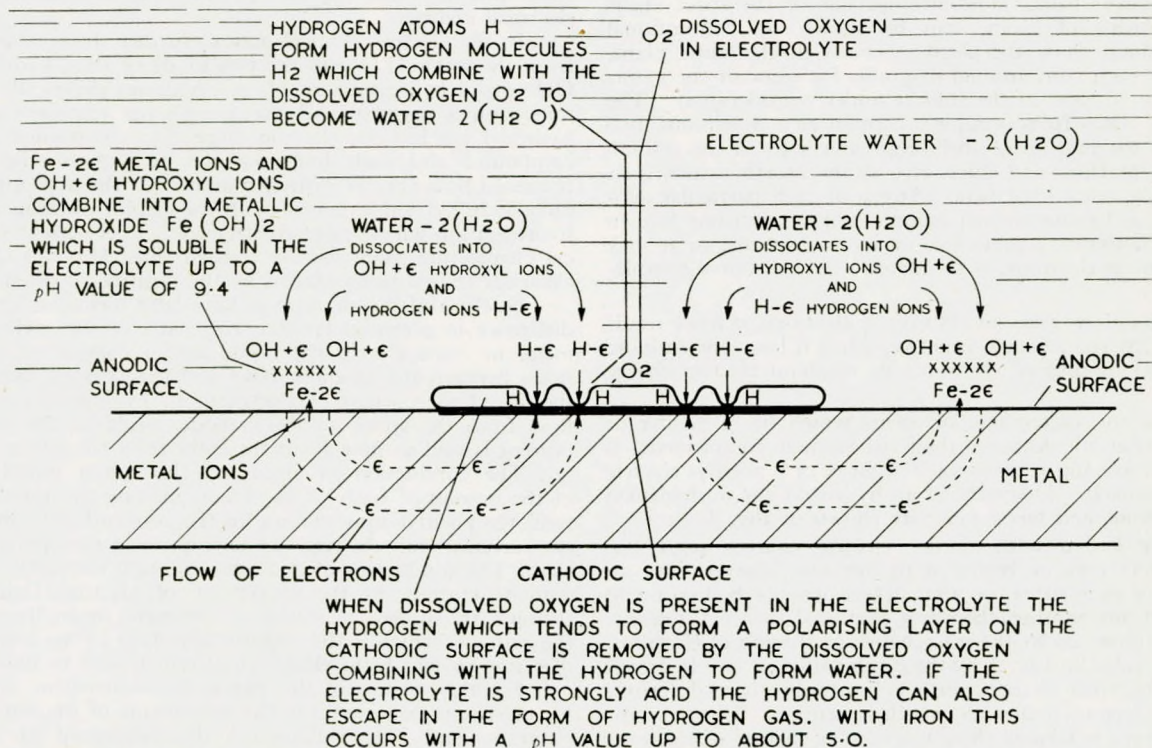 HYDROGEN ATOMS H
FORM HYDROGEN MOLECULES
H2 WHICH COMBINE WITH THE
DISSOLVED OXYGEN O2 TO
BECOME WATER 2(H2O)
O2 DISSOLVED OXYGEN
IN ELECTROLYTE
ELECTROLYTE WATER - 2(H2O)
Fe-2ϵ METAL IONS AND
OH+ϵ HYDROXYL IONS
COMBINE INTO METALLIC
HYDROXIDE Fe(OH)2
WHICH IS SOLUBLE IN THE
ELECTROLYTE UP TO A
pH VALUE OF 9·4
WATER - 2(H2O)
DISSOCIATES INTO
OH+ϵ HYDROXYL IONS
AND
HYDROGEN IONS H-ϵ
WATER - 2(H2O)
DISSOCIATES INTO
HYDROXYL IONS OH+ϵ
AND
H-ϵ HYDROGEN IONS
OH+ϵ OH+ϵ H-ϵ H-ϵ H-ϵ H-ϵ OH+ϵ OH+ϵ
ANODIC
SURFACE
XXXXXX
Fe-2ϵ
O2
XXXXXX
Fe-2ϵ
ANODIC-
SURFACE
H H H H
METAL IONS
ϵ ϵ ϵ ϵ
METAL
ϵ ϵ ϵ ϵ
FLOW OF ELECTRONS
CATHODIC SURFACE
WHEN DISSOLVED OXYGEN IS PRESENT IN THE ELECTROLYTE THE
HYDROGEN WHICH TENDS TO FORM A POLARISING LAYER ON THE
CATHODIC SURFACE IS REMOVED BY THE DISSOLVED OXYGEN
COMBINING WITH THE HYDROGEN TO FORM WATER. IF THE
ELECTROLYTE IS STRONGLY ACID THE HYDROGEN CAN ALSO
ESCAPE IN THE FORM OF HYDROGEN GAS. WITH IRON THIS
OCCURS WITH A pH VALUE UP TO ABOUT 5·0.